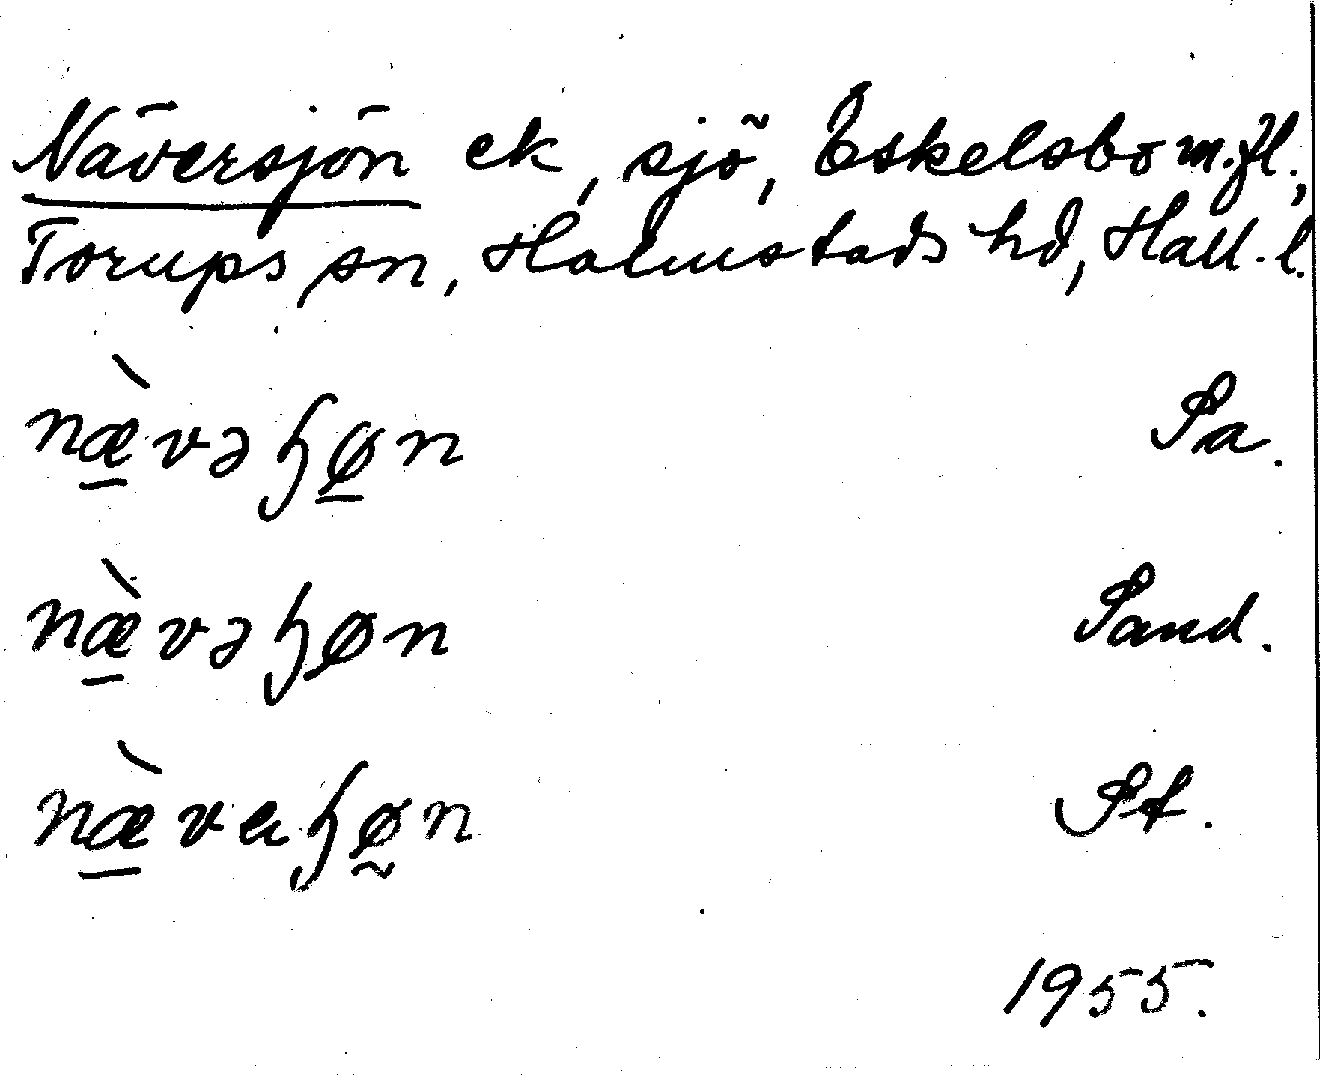 Näversjön ek, sjö, Eskelsbo m.fl.,
Torups sn, Halmstads hd, Hall. l.
næ̱̀vəɧø̱n Sa.
næ̱̀vəɧøn Sand.
næ̱̀vaɧø̰n St.
1955.